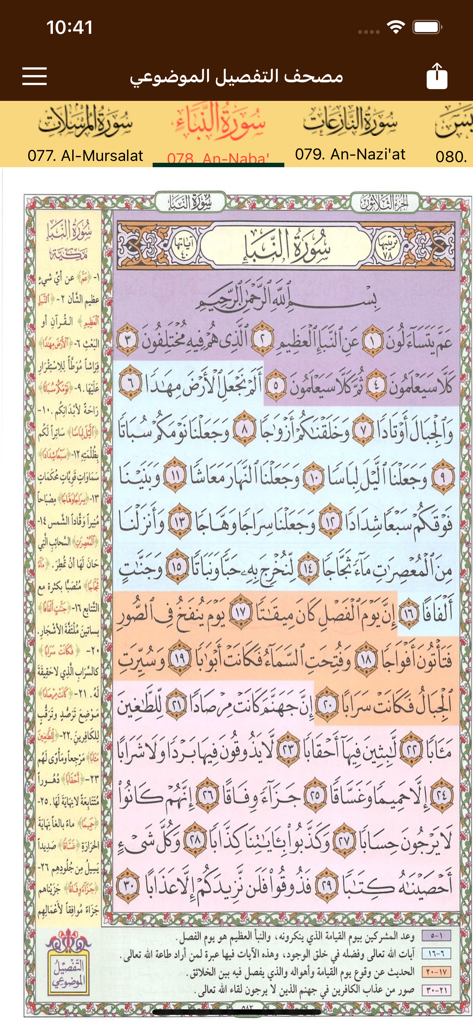 10:41
مصحف التفصيل الموضوعي
سورة المرسلات
سورة النبإ
سورة النازعات
077. Al-Mursalat
078. An-Naba'
079. An-Nazi'at
080.
سورة النبإ
الجزء الثلاثون
ترتيبها ٧٨
سورة النبإ
آياتها ٤٠
بسم الله الرحمن الرحيم
عم يتساءلون ١ عن النبإ العظيم ٢ الذي هم فيه مختلفون ٣
كلا سيعلمون ٤ ثم كلا سيعلمون ٥ ألم نجعل الأرض مهادا ٦
والجبال أوتادا ٧ وخلقناكم أزواجا ٨ وجعلنا نومكم سباتا
٩ وجعلنا الليل لباسا ١٠ وجعلنا النهار معاشا ١١ وبنينا
فوقكم سبعا شدادا ١٢ وجعلنا سراجا وهاجا ١٣ وأنزلنا
من المعصرات ماء ثجاجا ١٤ لنخرج به حبا ونباتا ١٥ وجنات
ألفافا ١٦ إن يوم الفصل كان ميقاتا ١٧ يوم ينفخ في الصور
فتأتون أفواجا ١٨ وفتحت السماء فكانت أبوابا ١٩ وسيرت
الجبال فكانت سرابا ٢٠ إن جهنم كانت مرصادا ٢١ للطاغين
مآبا ٢٢ لابثين فيها أحقابا ٢٣ لا يذوقون فيها بردا ولا شرابا
٢٤ إلا حميما وغساقا ٢٥ جزاء وفاقا ٢٦ إنهم كانوا
لا يرجون حسابا ٢٧ وكذبوا بآياتنا كذابا ٢٨ وكل شيء
أحصيناه كتابا ٢٩ فذوقوا فلن نزيدكم إلا عذابا ٣٠
سورة النبإ
مكية
١- ﴿عم﴾ عن أي شيء
عظيم الشأن ٢- ﴿النبإ
العظيم﴾ القرآن أو
البعث ٦- ﴿الأرض مهادا﴾
فراشا موطأ للاستقرار
عليها. ٩- ﴿نومكم سباتا﴾
راحة لأبدانكم. ١٠-
﴿الليل لباسا﴾ ساترا لكم
بظلمته ١٢- ﴿سبعا شدادا﴾
سماوات قويات محكمات
١٣- ﴿سراجا وهاجا﴾ مصباحا
منيرا وقادا الشمس ١٤-
﴿المعصرات﴾ السحائب التي
حان لها أن تمطر. ﴿ماء
ثجاجا﴾ منصبا بكثرة مع
التتابع ١٦- ﴿جنات ألفافا﴾
بساتين ملتفة الأشجار.
٢٠- ﴿فكانت سرابا﴾
كالسراب الذي لا حقيقة
له. ٢١- ﴿كانت مرصادا﴾
موضع ترصد وترقب
للكافرين. ٢٢- ﴿للطاغين
مآبا﴾ مرجعا ومأوى لهم
٢٣- ﴿أحقابا﴾ دهورا
متتابعة لا نهاية لها. ٢٥-
﴿حميما﴾ ماء بالغا نهاية
الحرارة ﴿غساقا﴾ صديدا
يسيل من جلودهم ٢٦-
﴿جزاء وفاقا﴾ جزيناهم
جزاء موافقا لأعمالهم
التفصيل الموضوعي
١-٥ وعد المشركين بيوم القيامة الذي ينكرونه، والنبأ العظيم هو يوم الفصل.
٦-١٦ آيات الله تعالى وفضله في خلق الوجود، وهذه الآيات فيها عبرة لمن أراد طاعة الله تعالى.
١٧-٢٠ الحديث عن وقوع يوم القيامة وأهواله والذي يفصل فيه بين الخلائق.
٢١-٣٠ صور من عذاب الكافرين في جهنم الذين لا يرجون لقاء الله تعالى.
٥٨٢